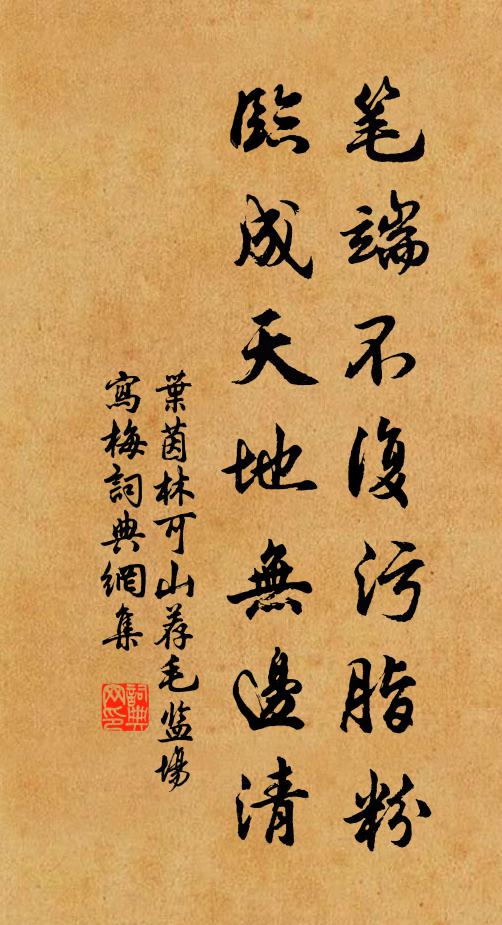 笔端不復污脂粉
臨成天地無邊清
葉茵林可山荐毛监場
寫梅詞典網集
詞典网印